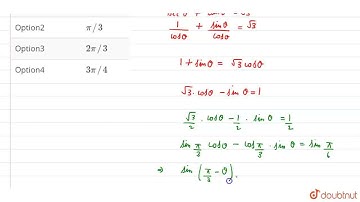 Option2 π/3
Option3 2π/3
Option4 3π/4
1/cosθ + sinθ/cosθ = √3
1 + sinθ = √3 cosθ
√3 · cosθ – sinθ = 1
√3/2 · cosθ – 1/2 · sinθ = 1/2
sin π/3 cosθ – cos π/3 · sinθ = sin π/6
⇒ sin (π/3 – θ).
doubtnut